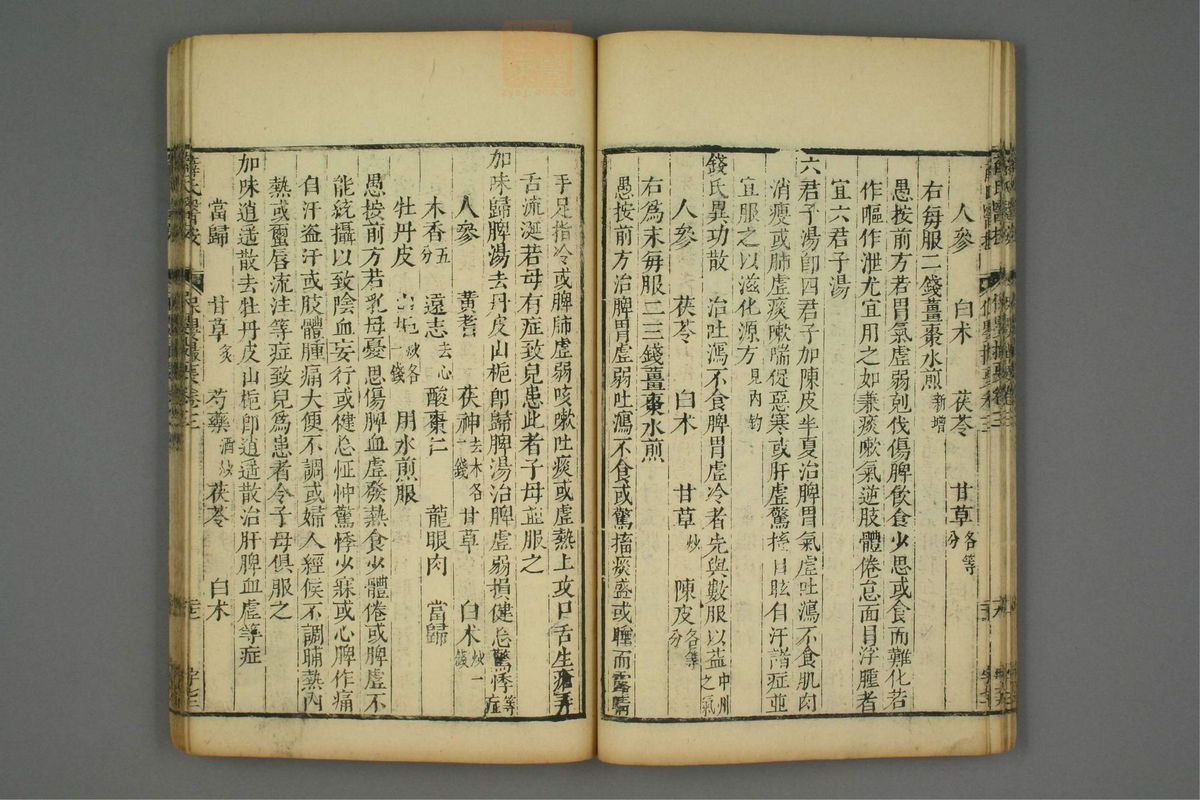 人參　白朮　茯苓　甘草各等分
右每服二錢薑棗水煎新增
愚按前方若胃氣虛弱剋伐傷脾飲食少思或食而難化若
作嘔作泄尤宜用之如兼痰嗽氣逆肢體倦怠面目浮腫者
宜六君子湯
六君子湯卽四君子加陳皮半夏治脾胃氣虛吐瀉不食肌肉
消瘦或肺虛痰嗽喘促惡寒或肝虛驚搐目眩自汗諸症並
宜服之以滋化源方見內釣
錢氏異功散　治吐瀉不食脾胃虛冷者先與數服以益中州之氣
人參　茯苓　白朮　甘草炒　陳皮各等分
右爲末每服二三錢薑棗水煎
愚按前方治脾胃虛弱吐瀉不食或驚搐痰盛或睡而露睛
手足指冷或脾肺虛弱咳嗽吐痰或虛熱上攻口舌生瘡弄
舌流涎若母有症致兒患此者子母並服之
加味歸脾湯去丹皮山梔卽歸脾湯治脾虛弱損健忘驚悸等症
人參　黃耆　茯神去木各一錢　甘草　白朮炒一錢
木香五分　遠志去心　酸棗仁　龍眼肉　當歸
牡丹皮　山梔炒各一錢　用水煎服
愚按前方若乳母憂思傷脾血虛發熱食少體倦或脾虛不
能統攝以致陰血妄行或健忘怔忡驚悸少寐或心脾作痛
自汗盜汗或肢體腫痛大便不調或婦人經候不調晡熱內
熱或唇流注等症致兒爲患者令子母俱服之
加味逍遙散去牡丹皮山梔卽逍遙散治肝脾血虛等症
當歸　甘草炙　芍藥酒炒　茯苓　白朮
薛氏醫按
保嬰撮要卷三